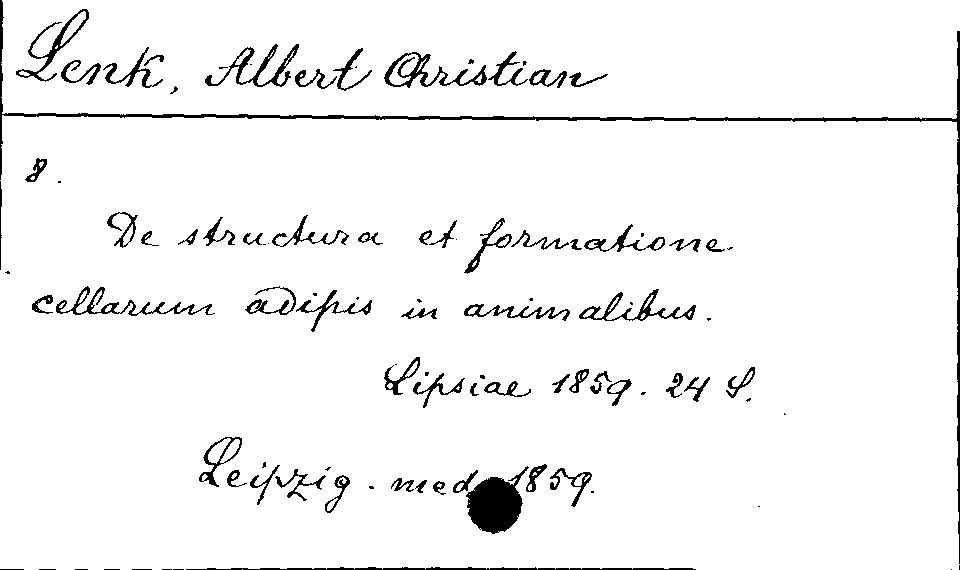 Lenk, Albert Christian
8.
De structura et formatione
cellarum adipis in animalibus.
Lipsiae 1859. 24 S.
Leipzig. med. 1859.